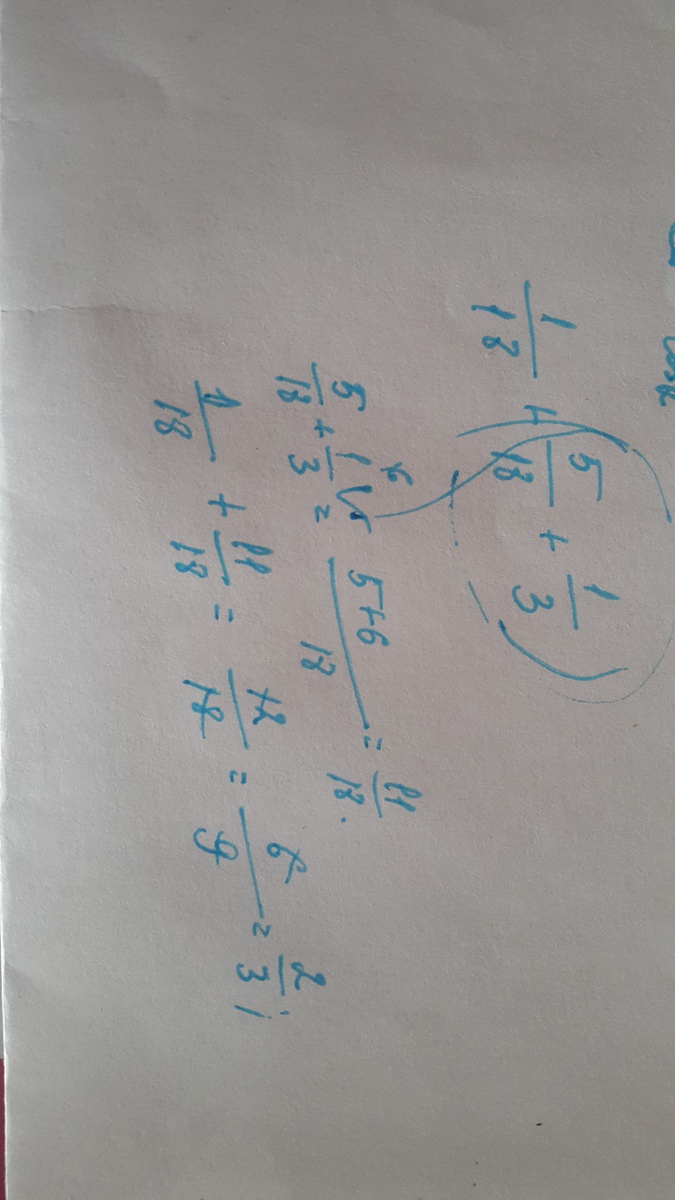 1/18 + 5/18 + 1/3
5/18 + 1/3 \6 = 5+6/18 = 11/18.
1/18 + 11/18 = 12/18 = 6/9 = 2/3 ;